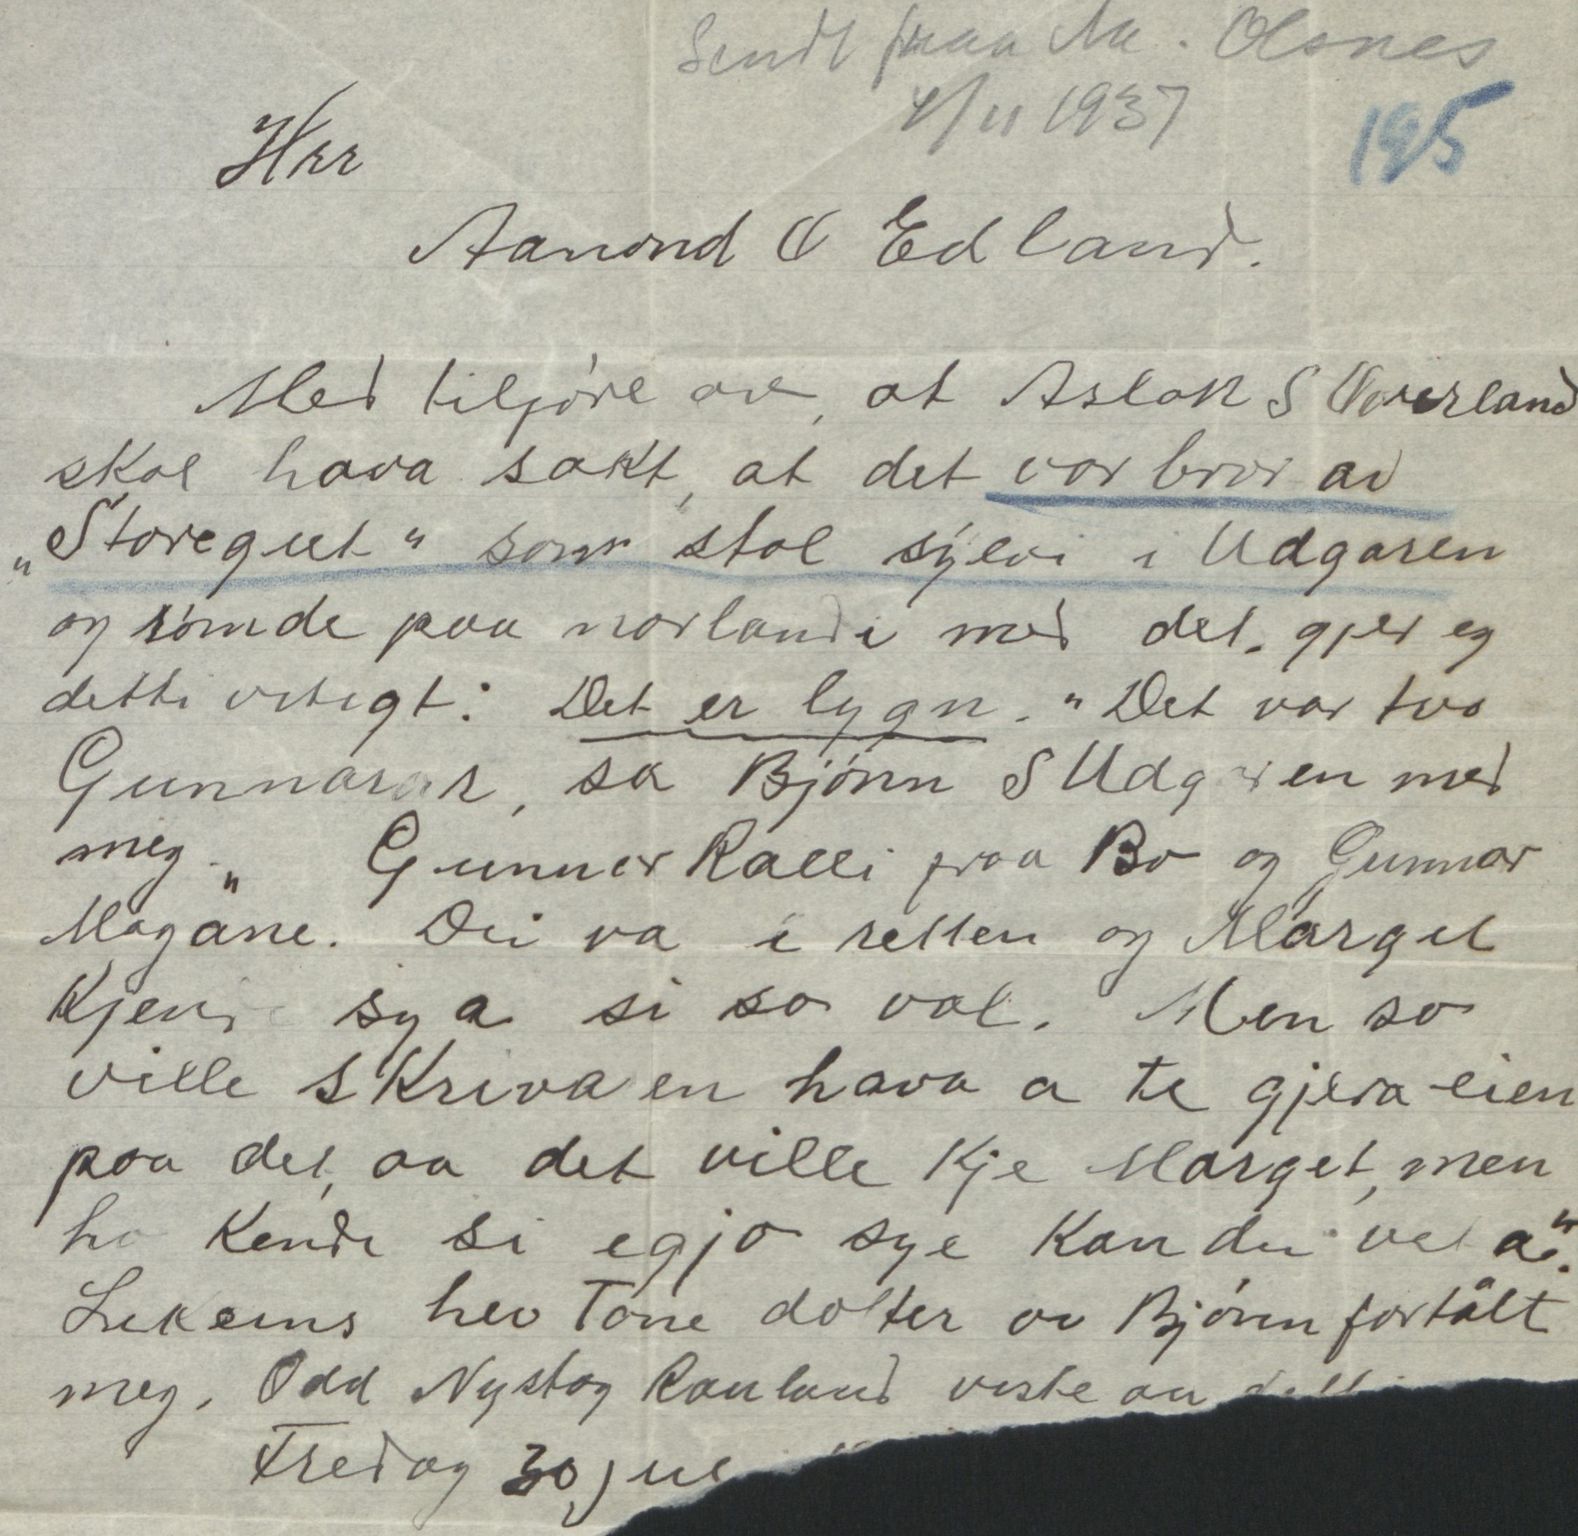 Sendt fraa Aa. Olsnes
4/11 1937
195
Hrr
Aanond O Edland.
Med tilføre av, at Aslak S Överland
skal hava sakt, at det var bror av
„Storegut" som stal sylvi i Udgaren
og römde paa norlandi med det. gjer eg
detti vitigt: Det er lygn. "Det var tvo
Gunnarar, sa Bjönn S Udgaren med
meg." Gunnar Ralli fraa Bo og Gunnar
Magáne. Dei va i retten og Marget
Kjende sya si so val. Men so
ville skrivaren hava a te gjera eien
paa det, aa det ville kje Marget, men
ho kende si egjo sye kan du vel a".
Likeins hev Tone dotter av Björn fortålt
meg. Odd Nystog Rauland viste au
Fredag 30 jul